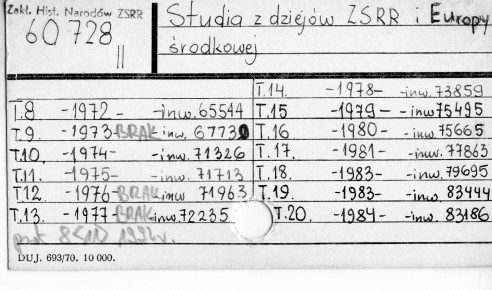 Zakł. Hist. Narodów ZSRR
60 728
II
Studia z dziejów ZSRR i Europy
środkowej
T.8 -1972- -inw. 65544
T.9. -1973 BRAK inw. 67730
T.10. -1974- -inw. 71326
T.11. -1975- -inw. 71713
T.12. -1976- BRAK inw 71963
T.13. -1977- BRAK inw. 72235
T.14. -1978- -inw. 73859
T.15 -1979- -inw 75495
T.16 -1980- -inw. 75665
T.17. -1981- -inw. 77863
T.18. -1983- -inw. 79695
T.19. -1983- -inw. 83444
T.20. -1984- -inw. 83186
1992 r.
DUJ. 693/70. 10 000.